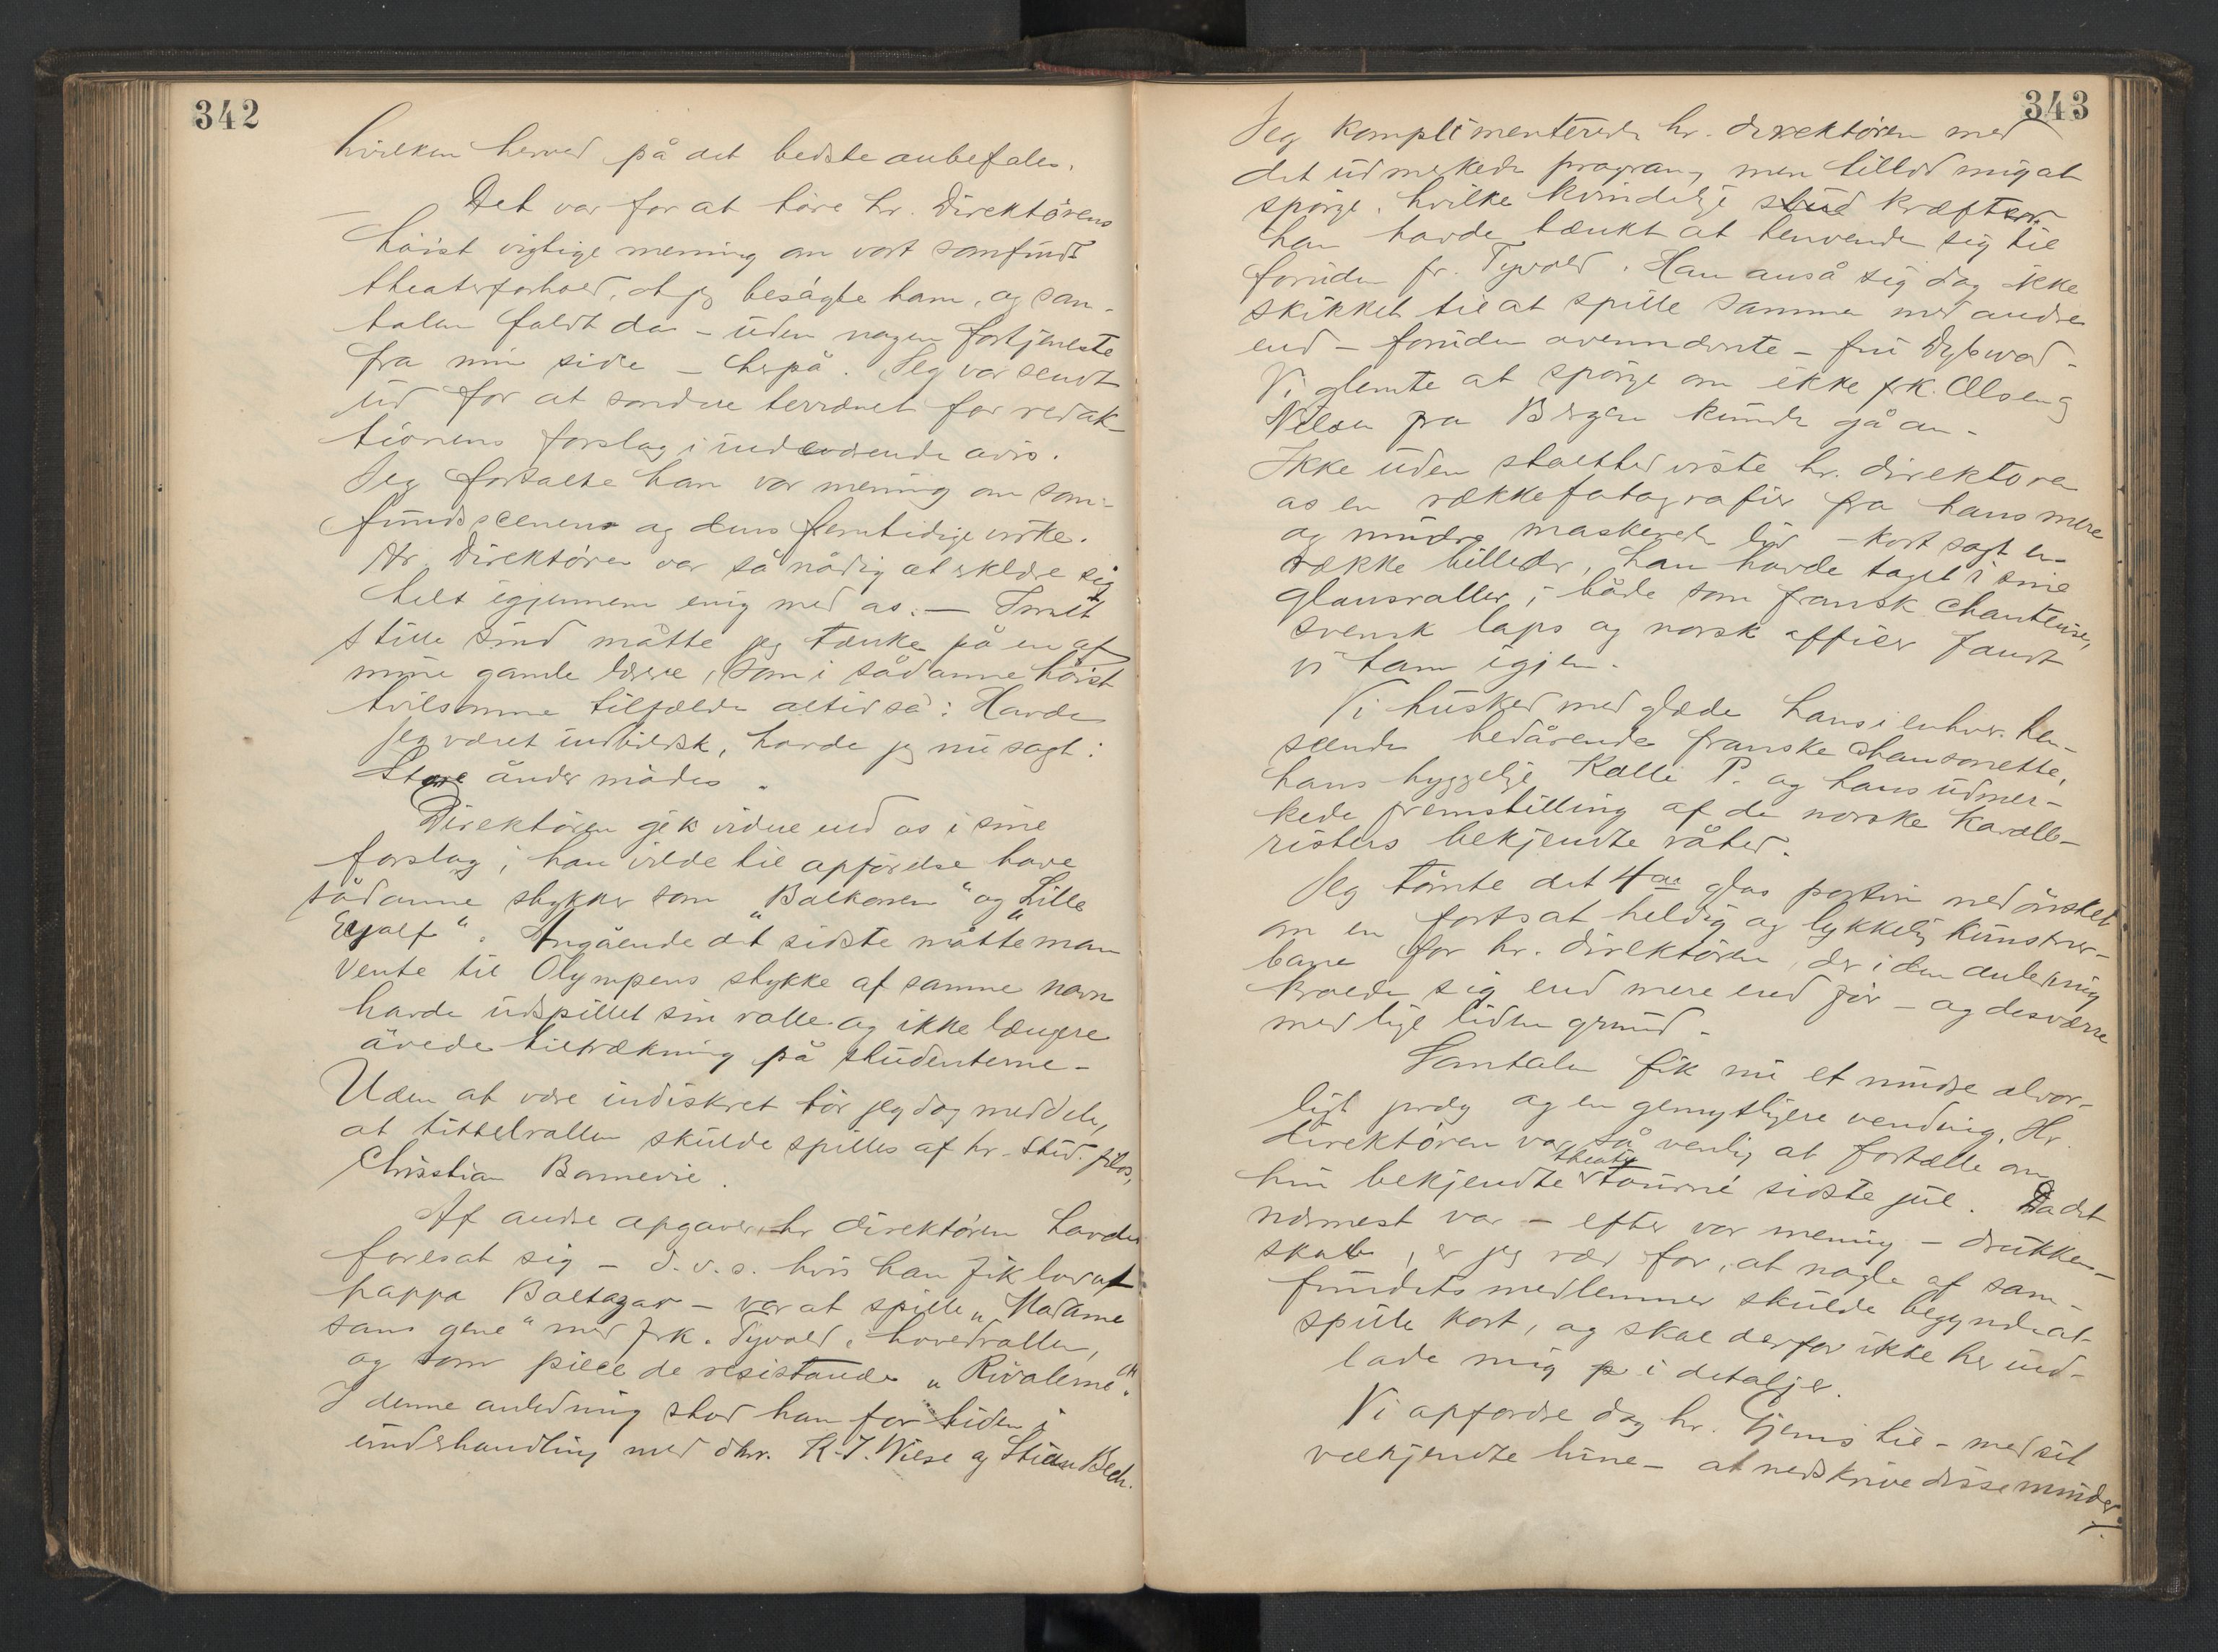 342
hvilken herved på det bedste anbefales.
— Det var for at höre hr. Direktörens
höist vigtige mening om vort samfunds
theaterforhold, at jeg besögte ham, og sam-
talen faldt da – uden nogen fortjeneste
fra min side – herpå. Jeg var sendt
ud for at sondere terrænet for redak
tionens forslag i indeværende avis.
Jeg fortalte ham vor mening om sam-
fundsscenens og dens fremtidige virke.
Hr. Direktören var så nådig at erklære sig
helt igjennem enig med os. – I mit
stille sind måtte jeg tænke på en af
mine gamle lærere, som i sådanne höist
tvilsomme tilfælde altid sa: Havde
jeg været indbildsk, havde jeg nu sagt:
Store ånder mödes.
Direktören gik videre end os i sine
forslag; han vilde til opförelse have
sådanne stykker som „Balkonen" og „Lille
Eyolf". Angående det sidste måtte man
vente til Olympens stykke af samme navn
havde udspillet sin rolle og ikke længere
övede tiltrækning på studenterne –
Uden at være indiskret tör jeg dog meddele,
at tittelrollen skulde spilles af hr. stud. filos.
Christian Bonnevie.
Af andre opgaver hr direktören havde
foresat sig – d.v.s. hvis han fik lov af
pappa Baltazar – var at spille „Madame
sans gene" med frk. Tyvold i hovedrollen,
og som piece de resistande „Rivalerne".
I denne anledning stod han for tiden i
underhandling med dhrr. K. J. Wiese og Stian Bech.
343
Jeg komplimenterede hr. direktören med
det udmerkede program, men tillod mig at
spörge, hvilke kvindelige stud kræfter
han havde tænkt at henvende sig til
foruden fr. Tyvold. Han anså sig dog ikke
skikket til at spille sammen med andre
end – foruden ovennævnte – fru Dybwad.
Vi glemte at spörge om ikke frk. Olsen og
Nilsen fra Bergen kunde gå an –
Ikke uden stolthed viste hr. direktören
os en række fotografier fra hans mere
og mindre maskerede liv – kort sagt en
række billeder, han havde taget i sine
glansroller; både som fransk chanteuse,
svensk laps og norsk officer fandt
vi ham igjen.
Vi husker med glæde hans i enhver hen-
seende bedårende franske chansonette,
hans hyggelige Kalle P. og hans udmer-
kede fremstilling af de norske kavalle-
risters bekjendte råhed.
Jeg tömte det 4de glas portvin med önsket
om en fortsat heldig og lykkelig kunstner-
bane for hr. direktören, der i den anledning
kroede sig end mere end för – og desværre
med lige liden grund –
Samtalen fik nu et mindre alvor-
ligt præg og en gemytligere vending. Hr.
direktören var så venlig at fortælle om
theater
hin bekjendte tourné sidste jul. Da det
nærmest var – efter vor mening – drukken-
skab, er jeg ræd for, at nogle af sam-
fundets medlemmer skulde begynde at
spille kort, og skal derfor ikke her ind-
lade mig p i detaljer.
Vi opfordre dog hr. Tjems til – med sit
velkjendte lune – at nedskrive disse minder.